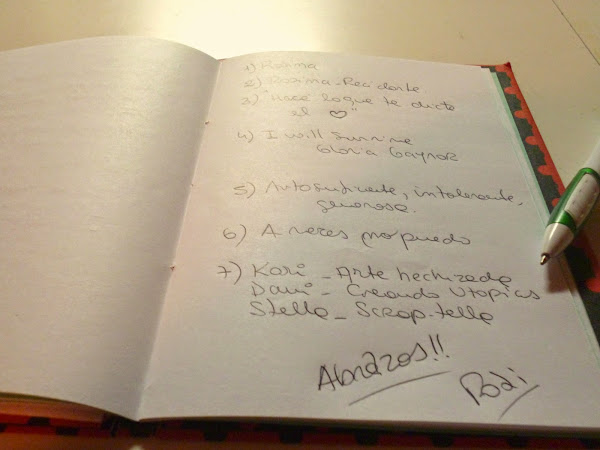 1) Rosima
2) Rosima Recidorte
3) "Hace loque te dicte
el ♡"
4) I will Survive
Gloria Gaynor
5) Autosuficiente, intolerante,
generosa.
6) A veces no puedo
7) Kari - Arte hechizado
Dani - Creando Utopias
Stella - Scrap-tella
Abrazos!!
Rosi